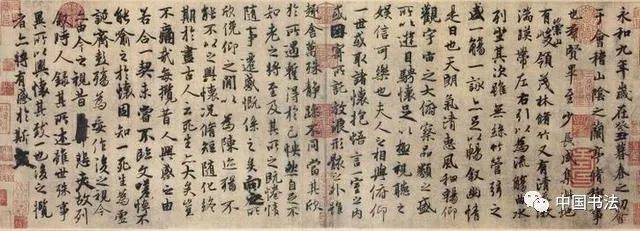 永和九年歲在癸丑暮春之初會
于會稽山陰之蘭亭脩稧事
也羣賢畢至少長咸集此地
有崇山峻領茂林脩竹又有清流激
湍暎帶左右引以為流觴曲水
列坐其次雖無絲竹管弦之
盛一觴一詠亦足以暢敘幽情
是日也天朗氣清惠風和暢仰
觀宇宙之大俯察品類之盛
所以遊目騁懷足以極視聽之
娛信可樂也夫人之相與俯仰
一世或取諸懷抱悟言一室之內
或因寄所託放浪形骸之外雖
趣舍萬殊靜躁不同當其欣
於所遇蹔得於己怏然自足不
知老之將至及其所之既惓情
隨事遷感慨係之矣向之所
欣俛仰之閒以為陳迹猶不
能不以之興懷況脩短隨化終
期於盡古人云死生亦大矣豈
不痛哉每攬昔人興感之由
若合一契未嘗不臨文嗟悼不
能喻之於懷固知一死生為虛
誕齊彭殤為妄作後之視今
亦由今之視昔悲夫故列
敘時人錄其所述雖世殊事
異所以興懷其致一也後之攬
者亦將有感於斯文
中国书法